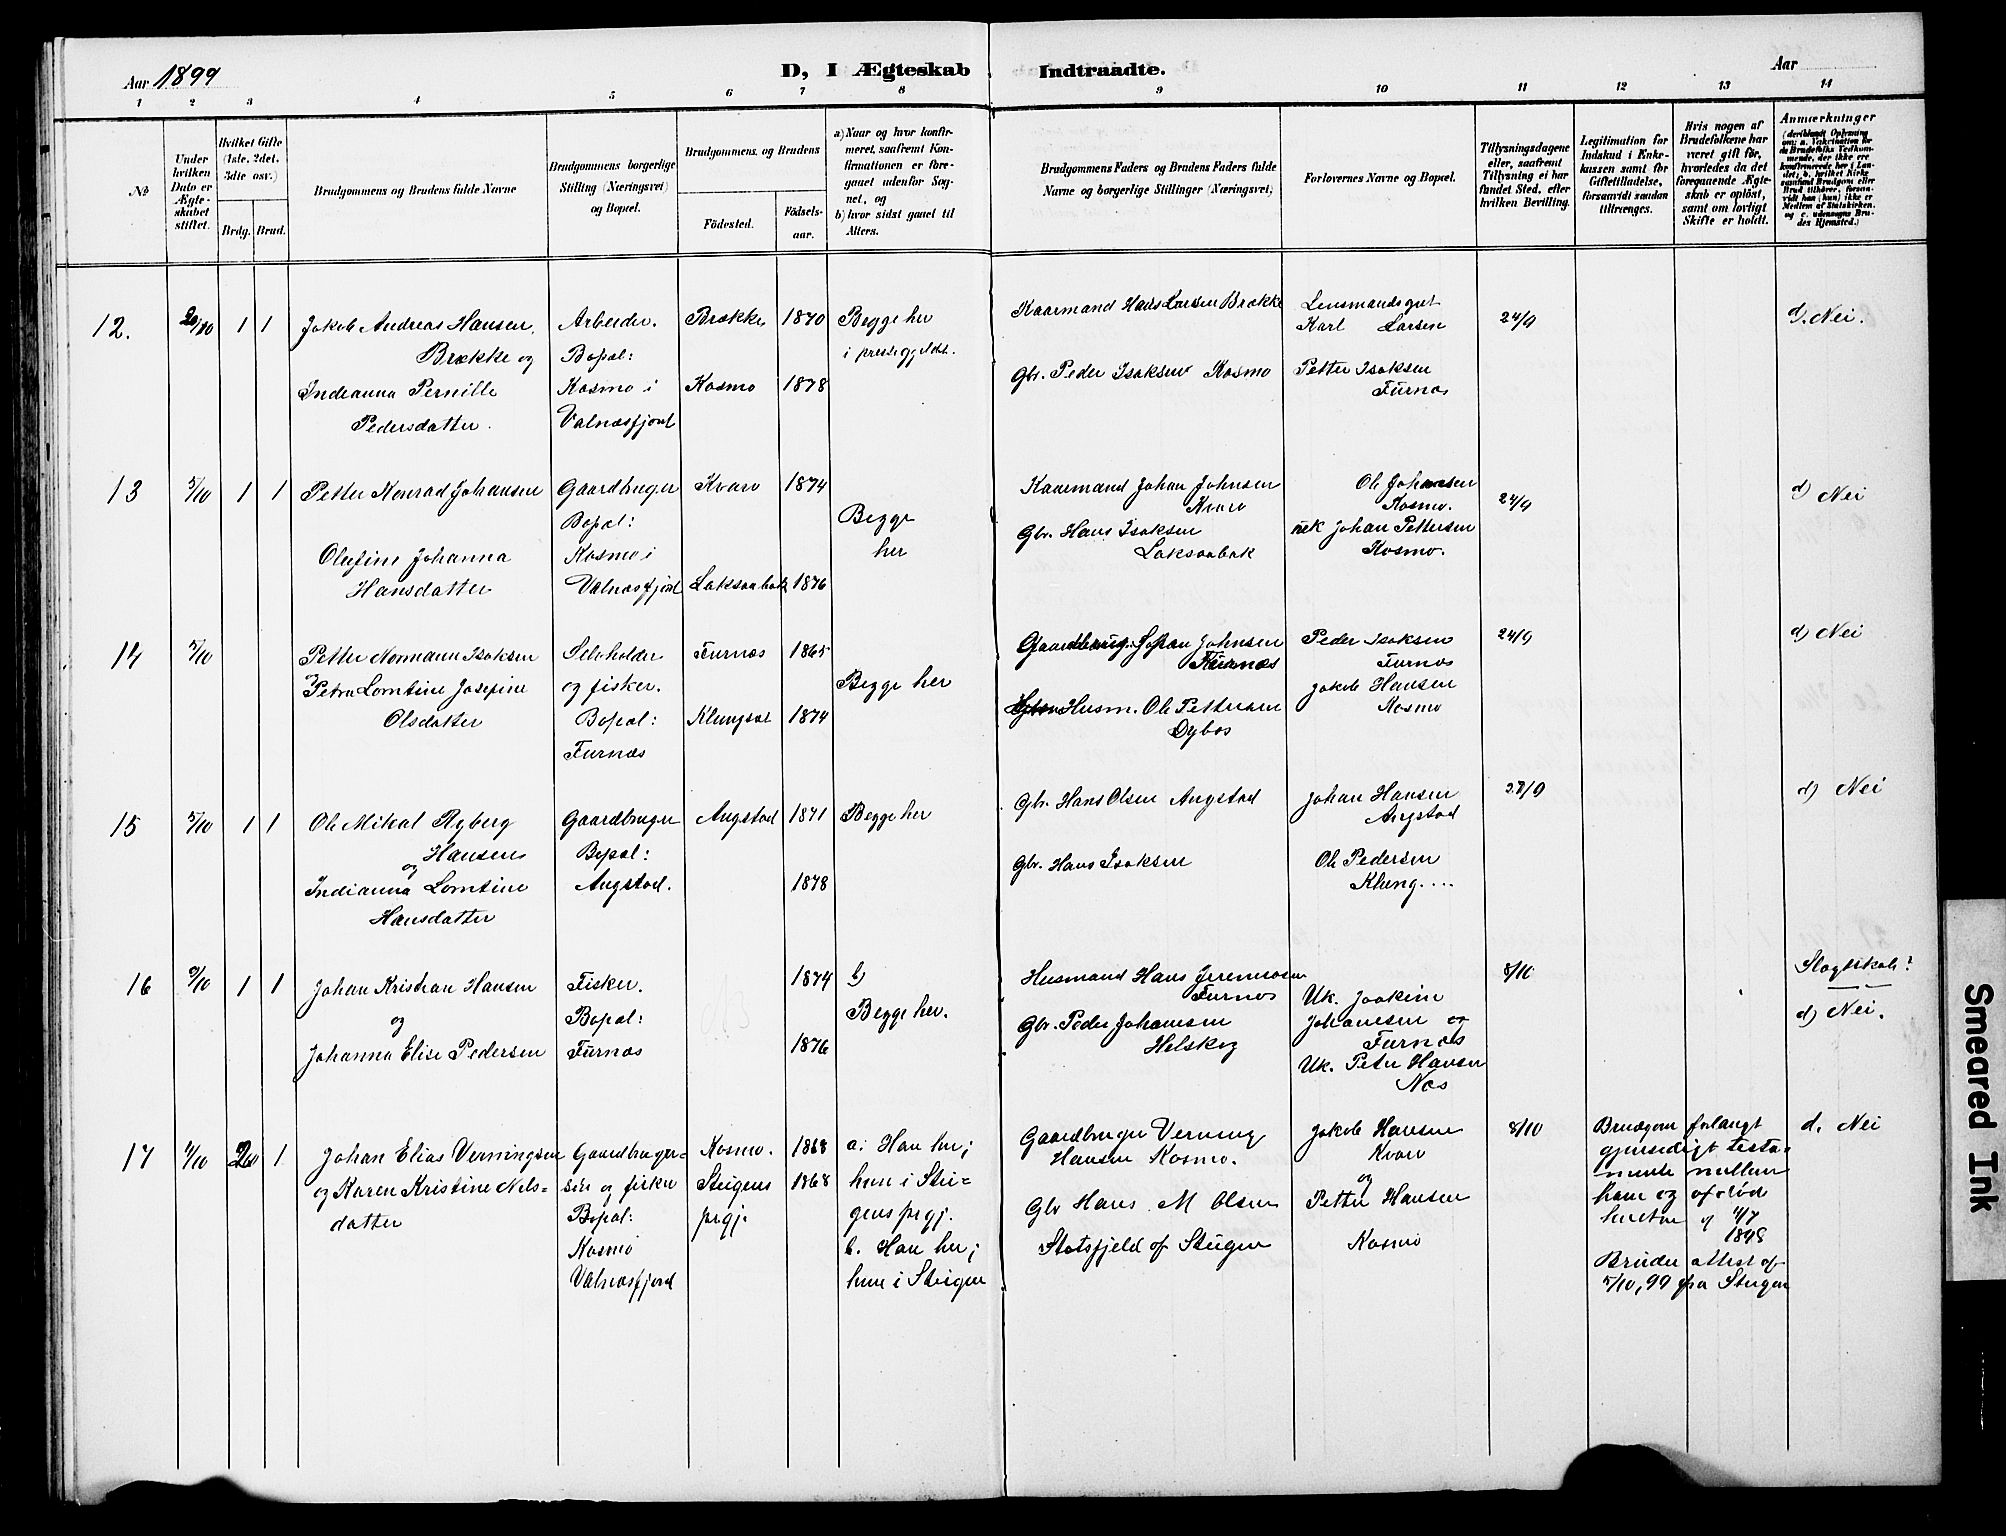 Aar 1899
D, I Ægteskab Indtraadte.
Aar
1 2 3 4 5 6 7 8 9 10 11 12 13 14
No
Under hvilken Dato er Ægteskabet stiftet.
Hvilket Gifte (1ste, 2det, 3die osv.)
Brdg. Brud.
Brudgommens og Brudens fulde Navne
Brudgommens borgerlige Stilling (Næringsvei) og Bopæl.
Brudgommens og Brudens
Födested.
Födselsaar.
a) Naar og hvor konfirmeret, saafremt Konfirmationen er foregaaet udenfor Sognet, og
b) hvor sidst gaaet til Alters.
Brudgommens Faders og Brudens Faders fulde Navne og borgerlige Stillinger (Næringsvei)
Forlovernes Navne og Bopæl.
Tillysningsdagene eller, saafremt Tillysning ei har fundet Sted, efter hvilken Bevilling.
Legitimation for Indskud i Enkekassen samt for Giftetilladelse, forsaavidt saadan tiltrænges.
Hvis nogen af Brudefolkene har været gift för, hvorledes da det foregaaende Ægteskab er oplöst, samt om lovligt Skifte er holdt.
Anmærkninger
12. 20/10 1 1
Jakob Andreas Hansen,
Brække og
Indianna Pernille
Pedersdatter.
Arbeider.
Bopæl:
Kosmo i
Valnæsfjord
Brække 1870
Kosmo 1878
Begge her
i prestegjeldet.
Kaarmand Hans Larsen Brække
Gbr. Peder Isaksen Kosmo
Lensmandsgut
Karl Larsen
Petter Isaksen
Furnæs
24/9
d). Nei.
13 5/10 1 1
Petter Konrad Johansen
Olufine Johanna
Hansdatter
Gaardbruger
Bopæl:
Kosmo i
Valnæsfjord
Kvarv 1874
Laksaabak 1876
Begge
her
Kaarmand Johan Johnsen
Kvarv
Gbr. Hans Isaksen
Laksaabak
Ole Johansen
Kosmo.
Johan Pettersen
Kosmo.
24/9
d) Nei
14 5/10
Petter Normann Isaksen
og Petra Lorntine Josefine
Olsdatter
Selvholder
og fisker.
Bopæl:
Furnæs
Furnæs 1865
Klungset 1874
Begge her
Gaardbrug. Johnsen
Furnæs
Husm. Ole Pettersen
Dybos
Peder Isaksen
Furnæs
Jakob Hansen
Kosmo
24/9
d) Nei
15 5/10 1 1
Ole Mikal Ryberg
Hansen
og
Indianna Lorntine
Hansdatter
Gaardbruger
Bopæl:
Angstad.
Angstad 1871
1878
Begge her
Gbr. Hans Olsen Angstad
Gbr. Hans Isaksen
Johan Hansen
Angstad
Ole Pedersen
Kleng....
d) Nei
16 9/10 1 1
Johan Kristian Hansen
og
Johanna Elise Pedersen
Fisker.
Bopæl:
Furnæs
1874
1876
b)
Begge her.
Husmand Hans Jeremiasen
Furnæs
Gbr. Peder Johansen
Helskog
Uk. Joakim
Johansen og
Furnæs
Uk. Peter Hansen
Næs
8/10
Slægtskab?
d) Nei.
17 /10 1
Johan Elias Verningsen
og Karen Kristine Nils=
datter
Gaardbruger=
søn og fisker
Bopæl:
Kosmo
Valnæsfjord
Kosmo. 1868
Steigens 1868
prgj.
a: Han her;
hun i Stei=
gens prgj.
b. Han her;
hun i Steigen
Gaardbruger Verning
Hansen Kosmo.
Gbr Hans M Olsen
Slotsfjeld af Steigen
Jakob Hansen
Kvarv
og
Petter Hansen
Kosmo
8/10
Brudgom forlangt
gjensidigt testa=
mente mellem
ham og afdød
hustru af /7
1898
Brudens attest af
5/10, 99 fra Steigen
d. Nei
Smeared Ink